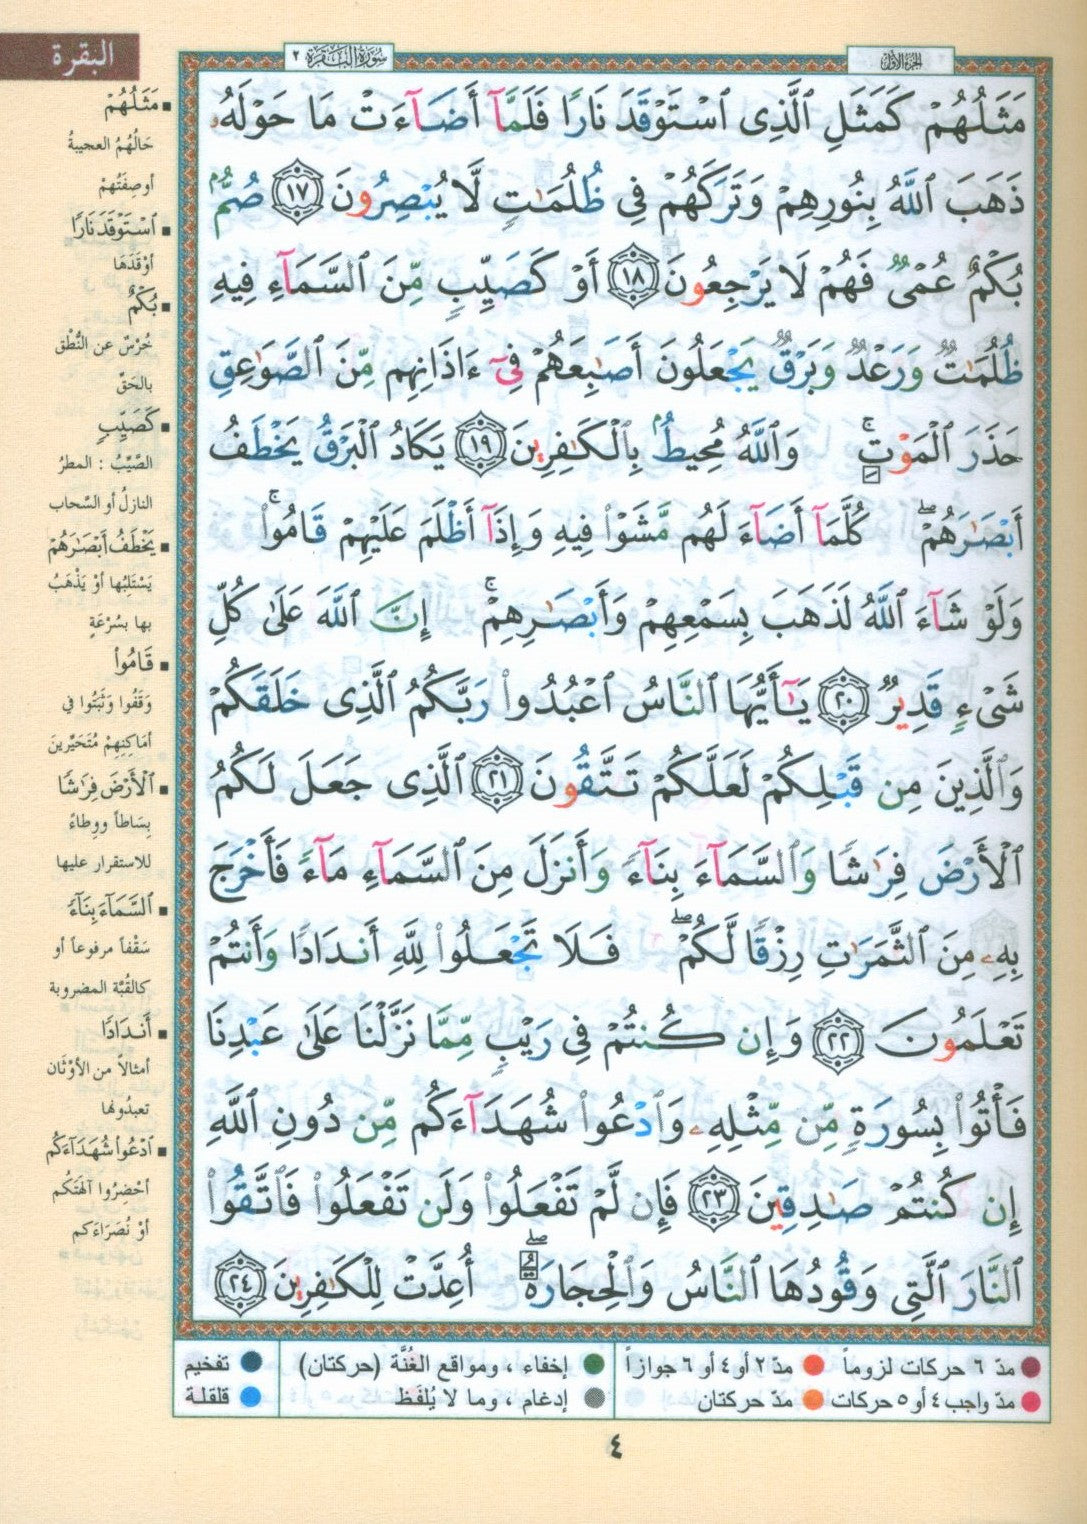 الجزء الأول
سورة البقرة ٢
البقرة
مَثَلُهُمْ كَمَثَلِ ٱلَّذِى ٱسْتَوْقَدَ نَارًا فَلَمَّآ أَضَآءَتْ مَا حَوْلَهُۥ
ذَهَبَ ٱللَّهُ بِنُورِهِمْ وَتَرَكَهُمْ فِى ظُلُمَٰتٍ لَّا يُبْصِرُونَ ١٧ صُمٌّۢ
بُكْمٌ عُمْىٌ فَهُمْ لَا يَرْجِعُونَ ١٨ أَوْ كَصَيِّبٍ مِّنَ ٱلسَّمَآءِ فِيهِ
ظُلُمَٰتٌ وَرَعْدٌ وَبَرْقٌ يَجْعَلُونَ أَصَٰبِعَهُمْ فِىٓ ءَاذَانِهِم مِّنَ ٱلصَّوَٰعِقِ
حَذَرَ ٱلْمَوْتِ ۚ وَٱللَّهُ مُحِيطٌۢ بِٱلْكَٰفِرِينَ ١٩ يَكَادُ ٱلْبَرْقُ يَخْطَفُ
أَبْصَٰرَهُمْ ۖ كُلَّمَآ أَضَآءَ لَهُم مَّشَوْا۟ فِيهِ وَإِذَآ أَظْلَمَ عَلَيْهِمْ قَامُوا۟ ۚ
وَلَوْ شَآءَ ٱللَّهُ لَذَهَبَ بِسَمْعِهِمْ وَأَبْصَٰرِهِمْ ۚ إِنَّ ٱللَّهَ عَلَىٰ كُلِّ
شَىْءٍ قَدِيرٌ ٢٠ يَٰٓأَيُّهَا ٱلنَّاسُ ٱعْبُدُوا۟ رَبَّكُمُ ٱلَّذِى خَلَقَكُمْ
وَٱلَّذِينَ مِن قَبْلِكُمْ لَعَلَّكُمْ تَتَّقُونَ ٢١ ٱلَّذِى جَعَلَ لَكُمُ
ٱلْأَرْضَ فِرَٰشًا وَٱلسَّمَآءَ بِنَآءً وَأَنزَلَ مِنَ ٱلسَّمَآءِ مَآءً فَأَخْرَجَ
بِهِۦ مِنَ ٱلثَّمَرَٰتِ رِزْقًا لَّكُمْ ۖ فَلَا تَجْعَلُوا۟ لِلَّهِ أَندَادًا وَأَنتُمْ
تَعْلَمُونَ ٢٢ وَإِن كُنتُمْ فِى رَيْبٍ مِّمَّا نَزَّلْنَا عَلَىٰ عَبْدِنَا
فَأْتُوا۟ بِسُورَةٍ مِّن مِّثْلِهِۦ وَٱدْعُوا۟ شُهَدَآءَكُم مِّن دُونِ ٱللَّهِ
إِن كُنتُمْ صَٰدِقِينَ ٢٣ فَإِن لَّمْ تَفْعَلُوا۟ وَلَن تَفْعَلُوا۟ فَٱتَّقُوا۟
ٱلنَّارَ ٱلَّتِى وَقُودُهَا ٱلنَّاسُ وَٱلْحِجَارَةُ ۖ أُعِدَّتْ لِلْكَٰفِرِينَ ٢٤
مَثَلُهُمْ
حَالُهُمُ العجيبةُ
أوصِفَتُهمْ
ٱسْتَوْقَدَ نَارًا
أوْقَدَهَا
بُكْمٌ
خُرْسٌ عن النُّطْق
بالحَقّ
كَصَيِّبٍ
الصَّيِّبُ : المطرُ
النازلُ أو السَّحاب
يَخْطَفُ أَبْصَٰرَهُمْ
يَسْتَلِبُها أوْ يَذْهَبُ
بها بسُرْعَةٍ
قَامُوا۟
وَقَفُوا وَثَبَتُوا في
أمَاكِنِهِمْ مُتَحَيِّرينَ
ٱلْأَرْضَ فِرَٰشًا
بِسَاطاً ووِطاءً
للاستقرار عليها
ٱلسَّمَآءَ بِنَآءً
سَقْفاً مرفوعاً أو
كالقُبَّة المضروبة
أَندَادًا
أمثالاً من الأوْثَان
تعبدُونها
ٱدْعُوا۟ شُهَدَآءَكُم
أحْضِرُوا آلهَتَكُم
أوْ نُصَرَاءَكم
مدّ ٦ حركات لزوماً مدّ ٢ أو ٤ أو ٦ جوازاً إخفاء ، ومواقع الغُنَّة (حركتان) تفخيم
مدّ واجب ٤ أو ٥ حركات مدّ حركتان إدغام ، وما لا يُلفَظ قلقلة
٤